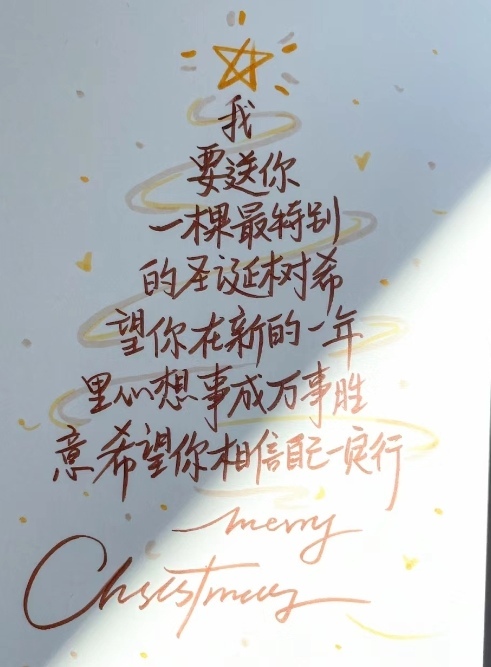 我
要送你
一棵最特别
的圣诞树希
望你在新的一年
里心想事成万事胜
意希望你相信自己一定行
merry
Christmas